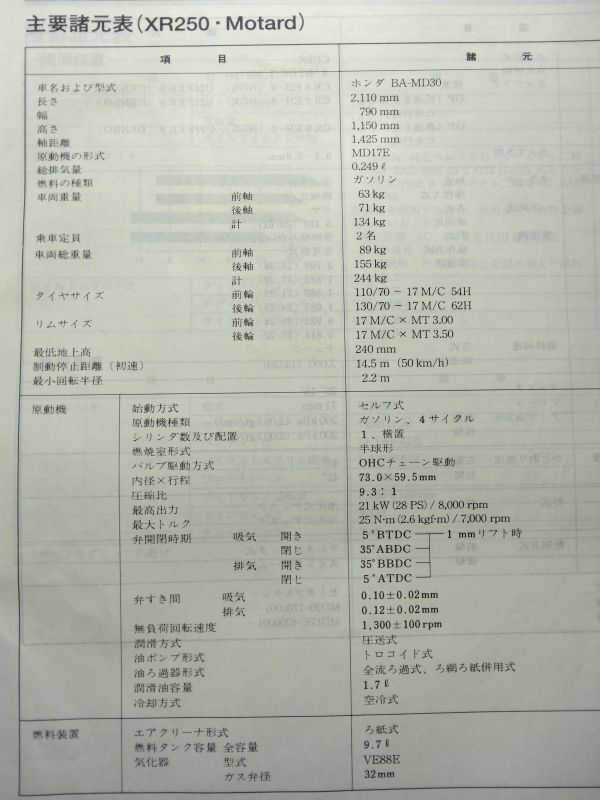 主要諸元表(XR250・Motard)
項 目 諸 元
車名および型式 ホンダ BA-MD30
長さ 2,110 mm
幅 790 mm
高さ 1,150 mm
軸距離 1,425 mm
原動機の形式 MD17E
総排気量 0.249 ℓ
燃料の種類 ガソリン
車両重量 前軸 63 kg
後軸 71 kg
計 134 kg
乗車定員 2 名
車両総重量 前軸 89 kg
後軸 155 kg
計 244 kg
タイヤサイズ 前輪 110/70 − 17 M/C 54H
後輪 130/70 − 17 M/C 62H
リムサイズ 前輪 17 M/C × MT 3.00
後輪 17 M/C × MT 3.50
最低地上高 240 mm
制動停止距離(初速) 14.5 m (50 km/h)
最小回転半径 2.2 m
原動機 始動方式 セルフ式
原動機種類 ガソリン、4 サイクル
シリンダ数及び配置 1、横置
燃焼室形式 半球形
バルブ駆動方式 OHCチェーン駆動
内径×行程 73.0×59.5mm
圧縮比 9.3：1
最高出力 21 kW (28 PS) / 8,000 rpm
最大トルク 25 N·m (2.6 kgf·m) / 7,000 rpm
弁開閉時期 吸気 開き 5°BTDC 1 mmリフト時
閉じ 35°ABDC
排気 開き 35°BBDC
閉じ 5°ATDC
弁すき間 吸気 0.10±0.02mm
排気 0.12±0.02mm
無負荷回転速度 1,300±100rpm
潤滑方式 圧送式
油ポンプ形式 トロコイド式
油ろ過器形式 全流ろ過式、ろ網ろ紙併用式
潤滑油容量 1.7 ℓ
冷却方式 空冷式
燃料装置 エアクリーナ形式 ろ紙式
燃料タンク容量 全容量 9.7 ℓ
気化器 型式 VE88E
ガス弁径 32mm